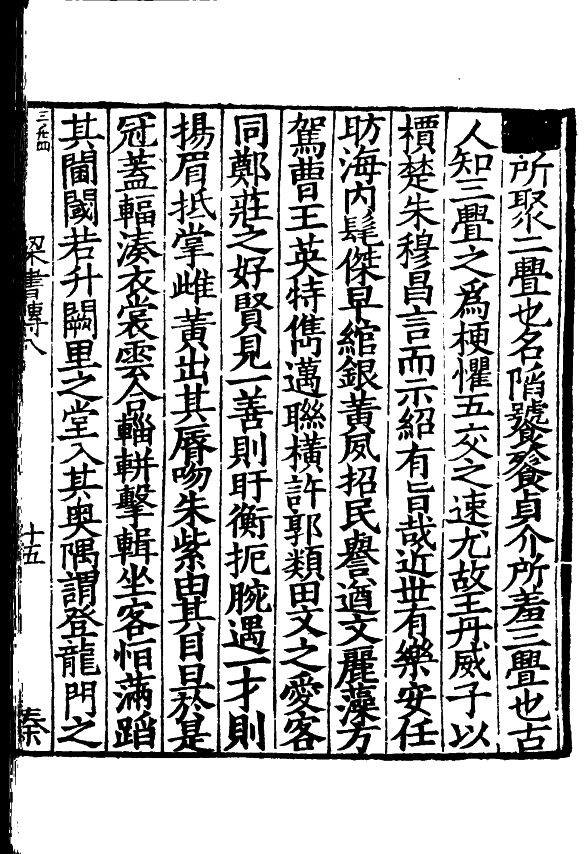 所聚二舋也名陷饕餮貞介所羞三舋也古
人知三舋之爲梗懼五交之速尤故王丹威子以
檟楚朱穆昌言而示紹有旨哉近世有樂安任
昉海內髦傑早綰銀黃夙招民譽遒文麗藻方
駕曹王英特儁邁聯橫許郭類田文之愛客
同鄭莊之好賢見一善則盱衡扼腕遇一才則
揚眉抵掌雌黃出其脣吻朱紫由其月旦於是
冠蓋輻湊衣裳雲合輜軿擊輯坐客恒滿蹈
其閫閾若升闕里之堂入其奧隅謂登龍門之
梁書傳八
十五
秦